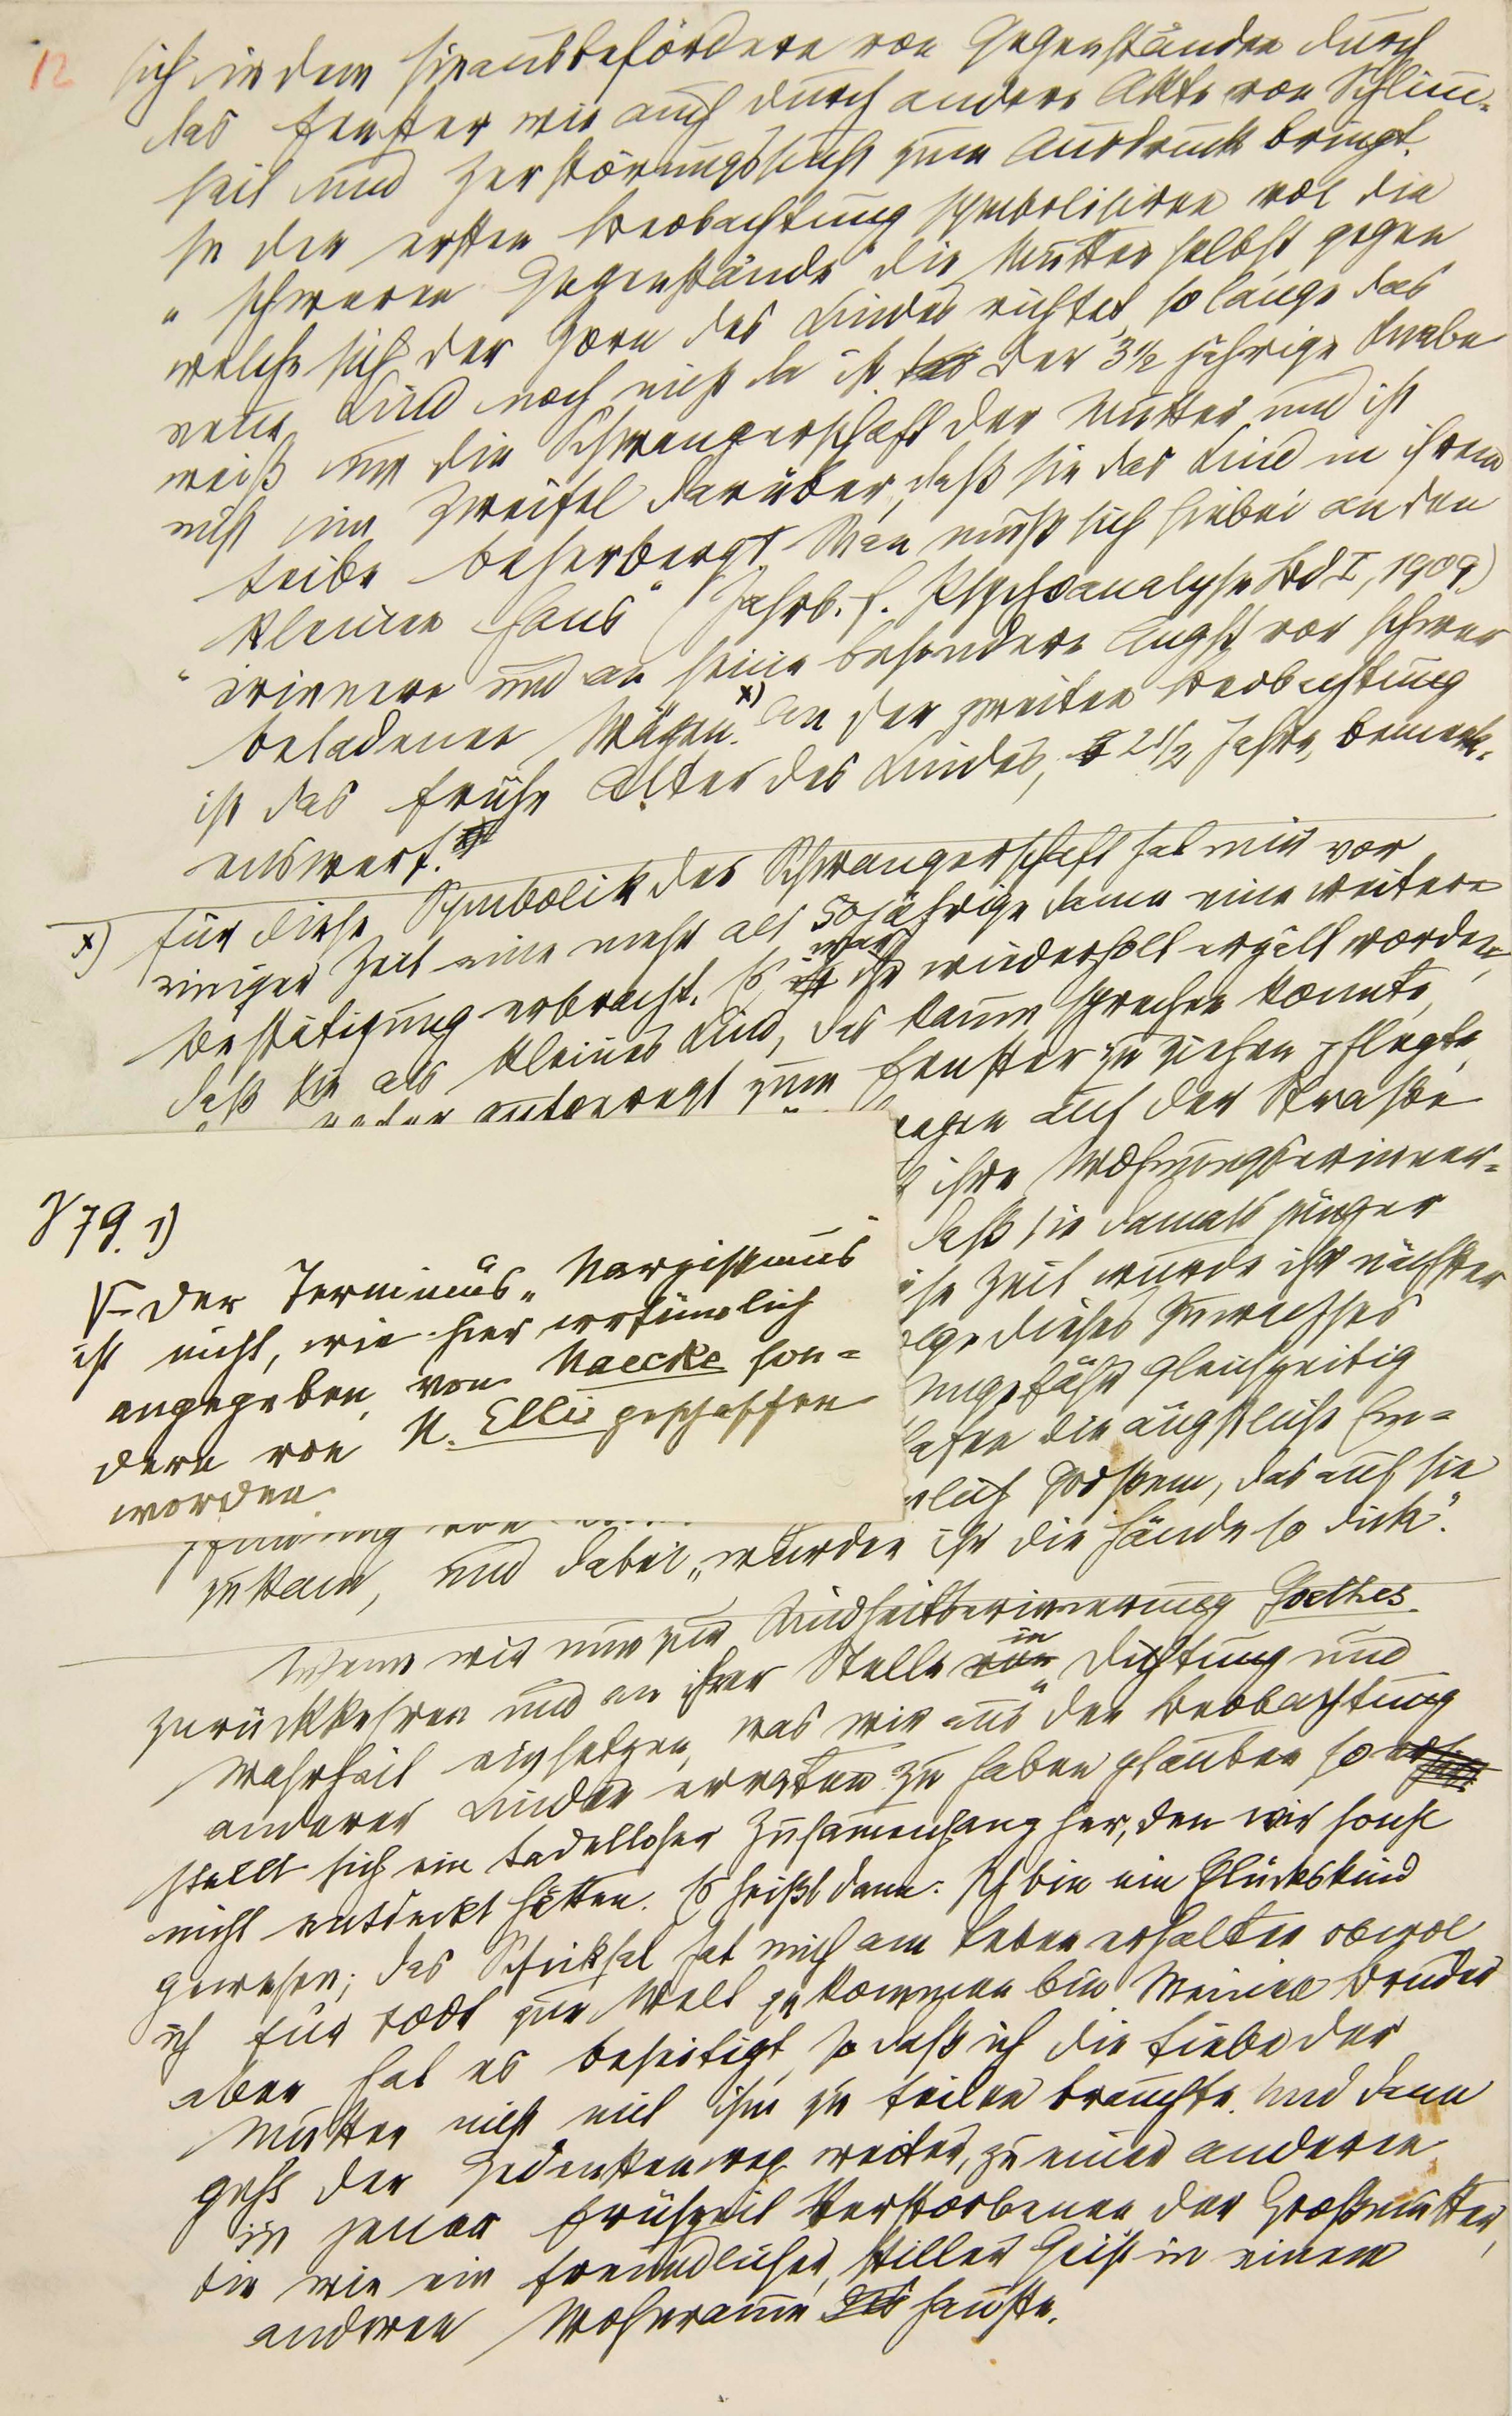 12
sich in dem Hinausbefördern von Gegenständen durch
das Fenster wie auch durch andere Akte von Schlim-
heit und Zerstörungssucht zum Ausdruck bringt.
In der ersten Beobachtung symbolisiren wol die
„schweren Gegenstände" die Mutter selbst gegen
welche sich der Zorn des Kindes richtet, solange das
neue Kind noch nicht da ist. Der 3½ jährige Knabe
weiß um die Schwangerschaft der Mutter und ist
nicht im Zweifel darüber, daß sie das Kind in ihrem
Leibe beherbergt. Man muß sich hiebei an den
„kleinen Hans" (Jahrb. f. Psychoanalyse Bd I, 1909)
erinnern und an seine besondere Angst vor schwer
beladenen Wägen. x) An der zweiten Beobachtung
ist das frühe Alter des Kindes, 2½ Jahre, bemerk-
enswert.
x) Für diese Symbolik der Schwangerschaft hat mir vor
einiger Zeit eine mehr als 50jährige Dame eine weitere
Bestätigung erbracht. Es war ihr wiederholt erzält worden,
daß sie als kleines Kind, das kaum sprechen konnte,
aufgeregt zum Fenster zu ziehen pflegte,
wagen auf der Straße
ihre Wohnungserinner-
daß sie damals jünger
Zeit wurde ihr nächster
dieses Zuwachses
ungefähr gleichzeitig
die ängstliche Em-
Großem, das auf sie
zukam, und dabei „wurden ihr die Hände so dick".
S 79. 1)
Der Terminus „Narzißmus"
ist nicht, wie hier irrtümlich
angegeben, von Naecke son-
dern von H. Ellis geschaffen
worden.
Wenn wir nun zur Kindheitserinnerung Goethes
zurückkehren und an ihrer Stelle in „Dichtung und
Wahrheit" einsetzen, was wir aus der Beobachtung
anderer Kinder erraten zu haben glauben so
stellt sich ein tadelloser Zusammenhang her, den wir sonst
nicht entdeckt hätten. Es heißt dann: Ich bin ein Glückskind
gewesen; das Schicksal hat mich am Leben erhalten obwol
ich für todt zur Welt gekommen bin. Meinen Bruder
aber hat es beseitigt, so daß ich die Liebe der
Mutter nicht mit ihm zu teilen brauchte. Und dann
geht der Gedankenweg weiter, zu einer anderen
in jener Frühzeit Verstorbenen der Großmutter,
die wie ein freundlicher, stiller Geist in einem
anderen Wohnraum hauste.